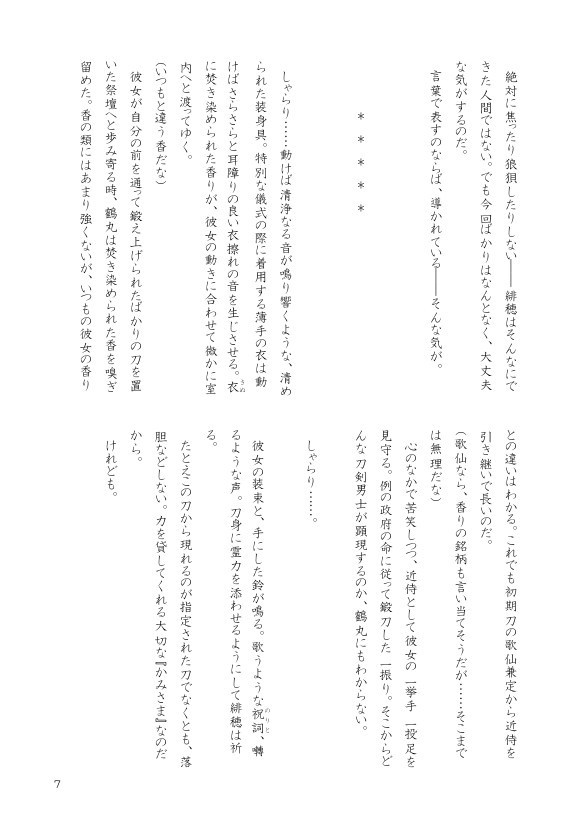 絶対に焦ったり狼狽したりしない――緋穂はそんなにで
きた人間ではない。でも今回ばかりはなんとなく、大丈夫
な気がするのだ。
言葉で表すのならば、導かれている――そんな気が。
＊　＊　＊　＊　＊
しゃらり……動けば清浄なる音が鳴り響くような、清め
られた装身具。特別な儀式の際に着用する薄手の衣は動
けばさらさらと耳障りの良い衣擦れの音を生じさせる。衣きぬ
に焚き染められた香りが、彼女の動きに合わせて微かに室
内へと渡ってゆく。
（いつもと違う香だな）
彼女が自分の前を通って鍛え上げられたばかりの刀を置
いた祭壇へと歩み寄る時、鶴丸は焚き染められた香を嗅ぎ
留めた。香の類にはあまり強くないが、いつもの彼女の香り
との違いはわかる。これでも初期刀の歌仙兼定から近侍を
引き継いで長いのだ。
（歌仙なら、香りの銘柄も言い当てそうだが……そこまで
は無理だな）
心のなかで苦笑しつつ、近侍として彼女の一挙手一投足を
見守る。例の政府の命に従って鍛刀した一振り。そこからど
んな刀剣男士が顕現するのか、鶴丸にもわからない。
しゃらり……。
彼女の装束と、手にした鈴が鳴る。歌うような祝詞のりと、囀
るような声。刀身に霊力を添わせるようにして緋穂は祈
る。
たとえこの刀から現れるのが指定された刀でなくとも、落
胆などしない。力を貸してくれる大切な『かみさま』なのだ
から。
けれども。
7